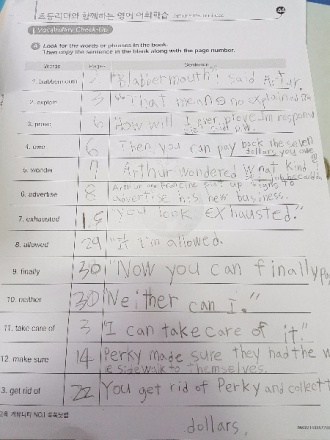 44
Vocabulary Check-Up
Look for the words or phrases in the book.
Then copy the sentence in the blank along with the page number.
Words Pages Sentence
1. blabbermouth 2 "Blabbermouth! said Arthur.
2. explain 3 "That means no explained
3. prove How will I ever prove I'm responsible
4. owe 6 Then you can pay back the seven
dollars you owe
5. wonder 7 Arthur wondered what kind
6. advertise 8 Arthur and Francine put up signs to
advertise his new business.
7. exhausted 15 "You look exhausted."
8. allowed 29 I'm allowed.
9. finally 30 "Now you can finally
10. neither 30 "Neither can I."
11. take care of 3 "I can take care of it."
12. make sure 14 Perky made sure they had the
sidewalk to themselves.
13. get rid of 22 You get rid of Perky and collect
dollars.